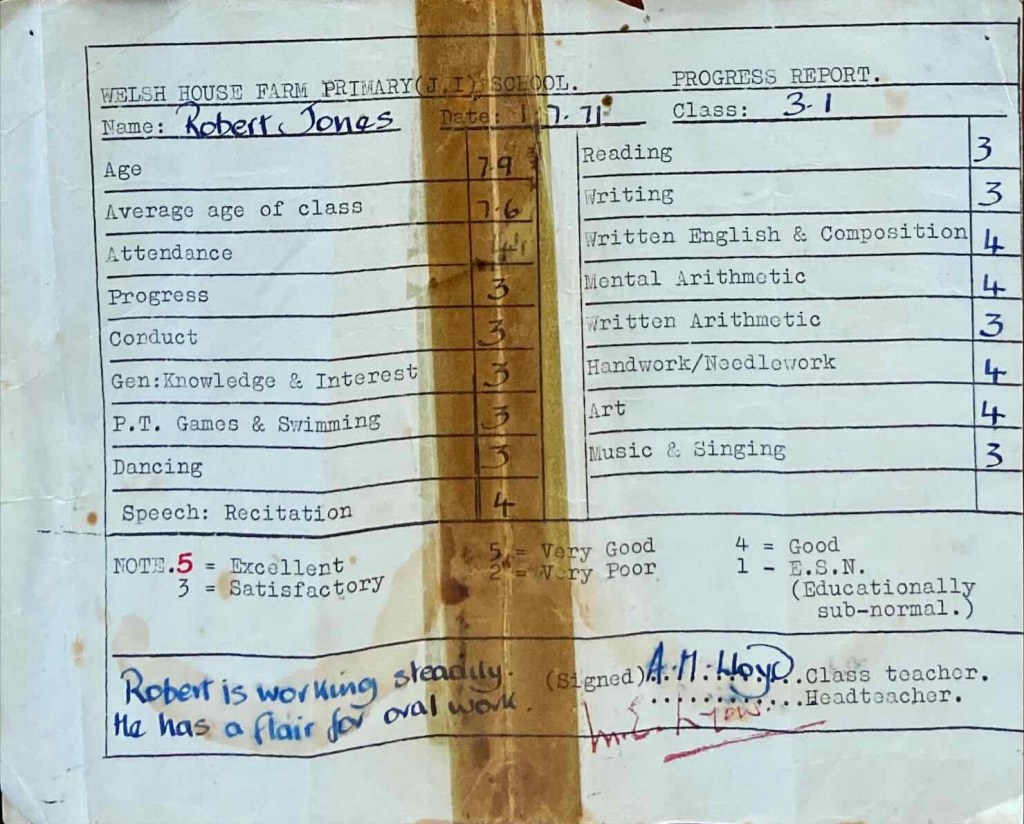 WELSH HOUSE FARM PRIMARY(J.I) SCHOOL. PROGRESS REPORT.
Name: Robert Jones Date: 1.7.71 Class: 3.1
Age 7.9
Average age of class 7.6
Attendance 4
Progress 3
Conduct 3
Gen:Knowledge & Interest 3
P.T. Games & Swimming 3
Dancing 3
Speech: Recitation 4
Reading 3
Writing 3
Written English & Composition 4
Mental Arithmetic 4
Written Arithmetic 3
Handwork/Needlework 4
Art 4
Music & Singing 3
NOTE.5 = Excellent 5 = Very Good 4 = Good
3 = Satisfactory 2 = Very Poor 1 - E.S.N.
(Educationally
sub-normal.)
Robert is working steadily.
He has a flair for oral work.
(Signed) A.M. Lloyd Class teacher.
Headteacher.